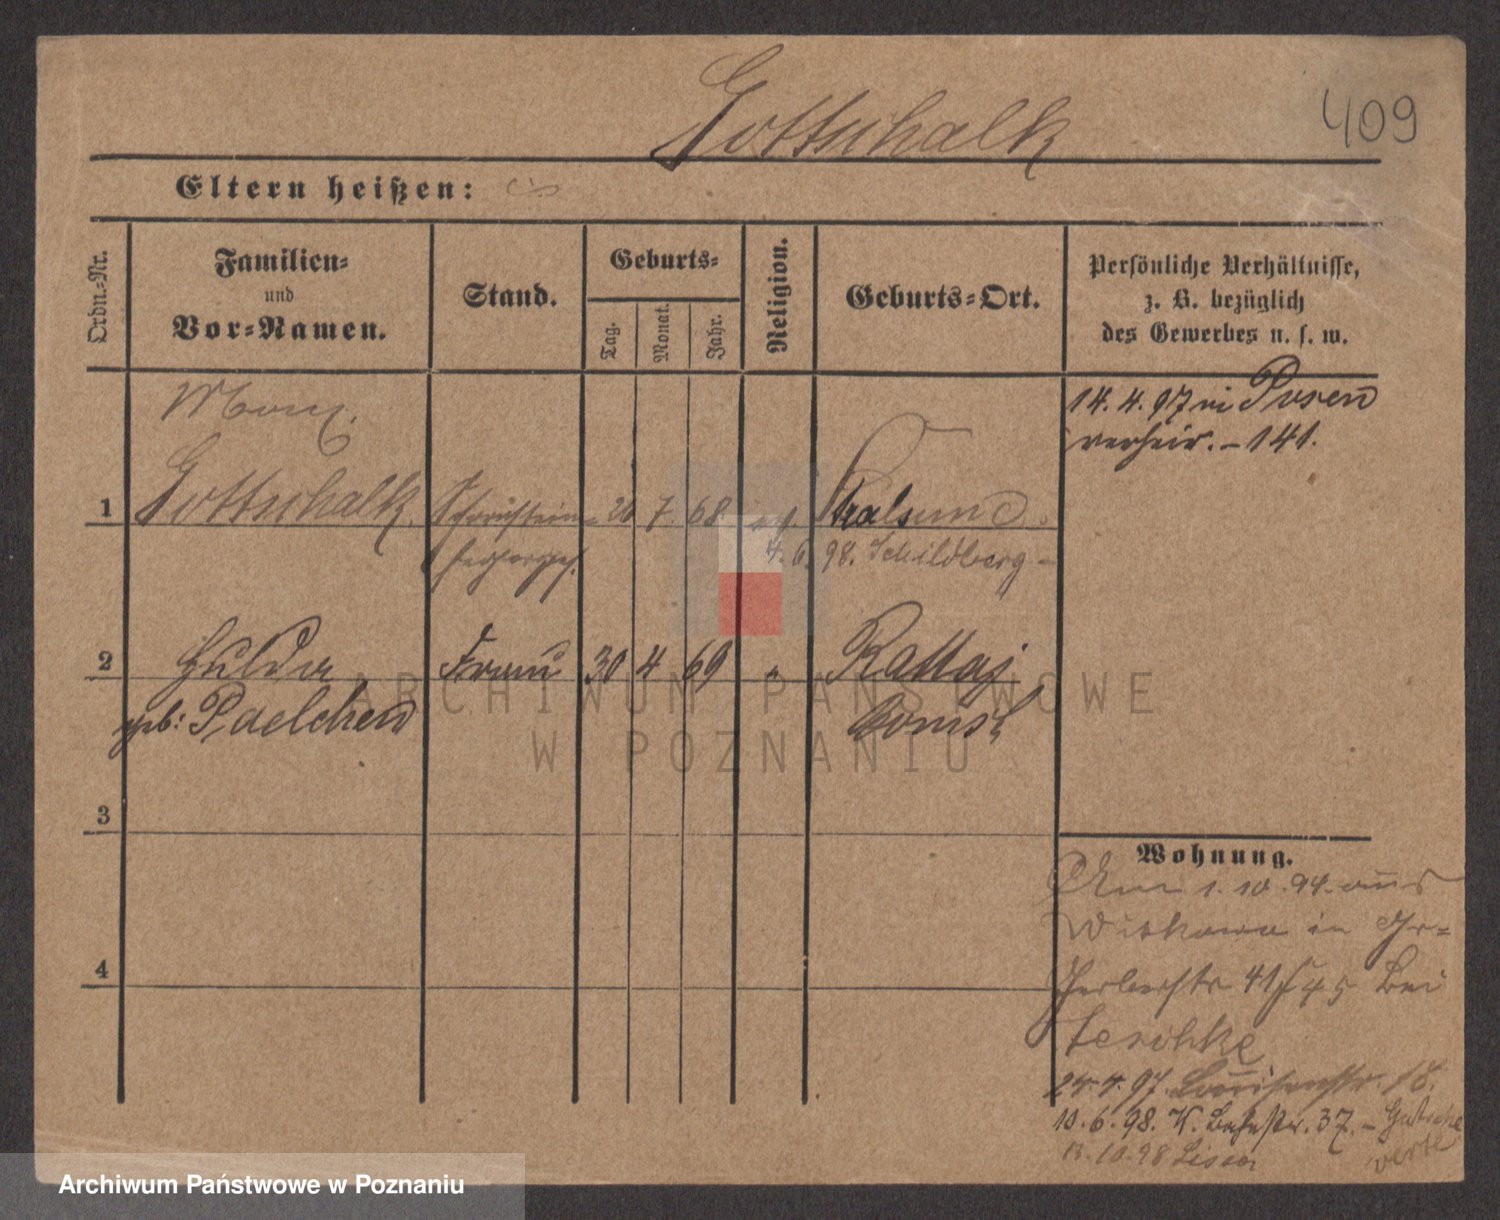 Gottschalk
409
Eltern heißen:
Ordn.-Nr.
Familien-
und
Vor-Namen.
Stand.
Geburts-
Tag.
Monat.
Jahr.
Religion.
Geburts-Ort.
Persönliche Verhältnisse,
z. B. bezüglich
des Gewerbes u. s. w.
14. 4. 97 in Posen
verheir. - 141.
1
Gottschalk.
Schornstein-
26
7
68
ev
Stralsund.
fegerges.
4. 6. 98. Schildberg -
2
Hulda
Frau
30
4
69
"
Rattaj
geb: Paelchen
Bomst
3
4
Wohnung.
1. 10. 94. aus
Witkowo in Gr=
Gerberstr 41 bei
24. 4. 97. Louisenstr. 18.
10. 6. 98. K. 37. -
13. 10. 98 Lissa
ARCHIWUM PAŃSTWOWE
W POZNANIU
Archiwum Państwowe w Poznaniu